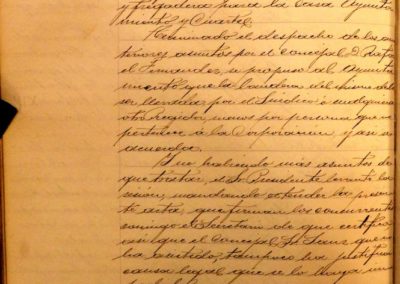 y fregadera para la Casa Ayunta
miento y Cuartel.
Terminado el despacho de los an
teriores asuntos por el concejal D.
el Fernandez, se propuso al Ayunta
miento que la bandera del
ser llevada por el Sindico ó cualquiera
otro Regidor, menos por persona que no
pertenece á la Corporacion y asi se
acuerda.
Y no habiendo más asuntos de
que tratar, el Sr. Presidente levantó la
sesion, mandando estender la presen
te acta, que firman los concurrentes
conmigo el Secretario de que certifico
asi que el concejal Sr. que no
ha asistido, tampoco ha justificado
causa legal que se lo haya im